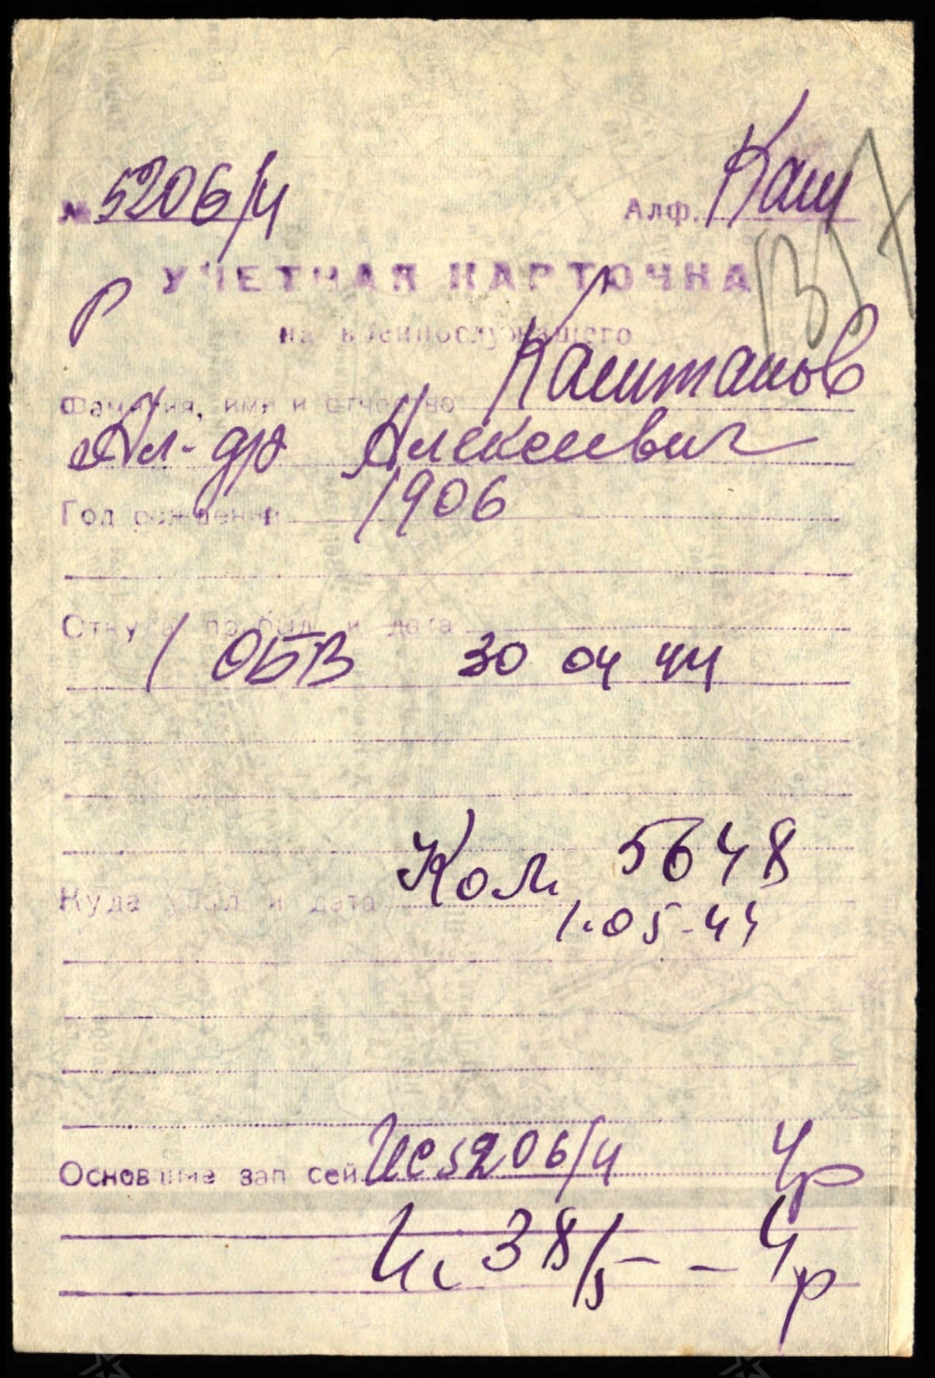 № 5206/4 Алф. Каш
УЧЕТНАЯ КАРТОЧКА
Р на военнослужащего
Фамилия, имя и отчество Каштанов
Ал-др Алексеевич
Год рождения 1906
Откуда прибыл и дата
ОБВ 30 04 44
Ком 5648
Куда убыл и дата
1.05-44
Основание записей Ис 5206/4 Чр
Ис 38/5 - - Чр